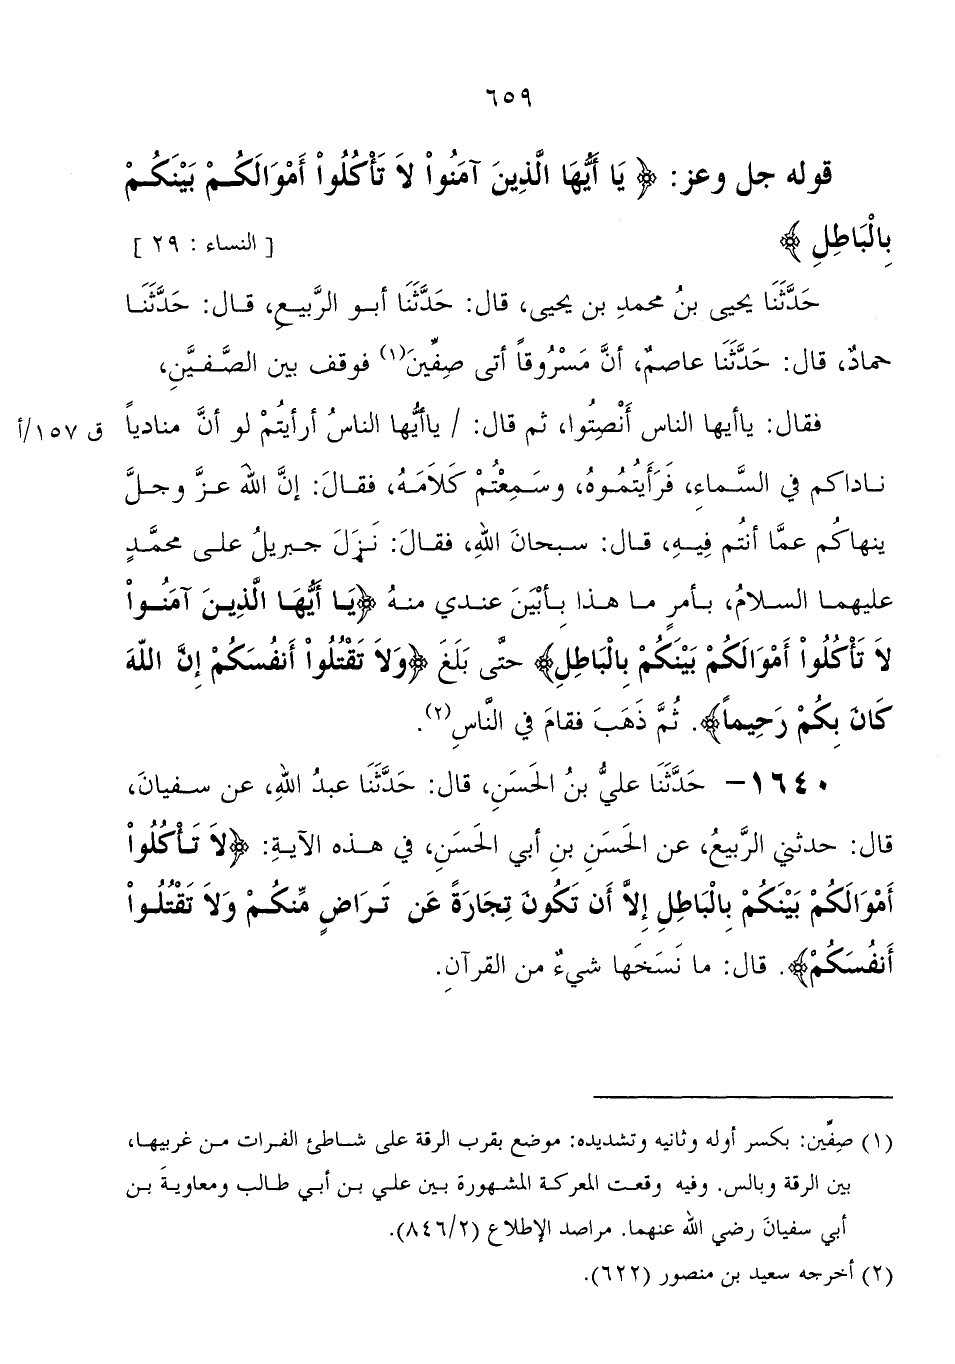 ٦٥٩
قوله جل وعز: ﴿ يَا أَيُّهَا الَّذِينَ آمَنُواْ لاَ تَأْكُلُواْ أَمْوَالَكُمْ بَيْنَكُمْ
بِالْبَاطِلِ ﴾ [ النساء : ٢٩ ]
حَدَّثَنَا يحيى بنُ محمدِ بن يحيى، قال: حَدَّثَنَا أبو الرَّبيعِ، قال: حَدَّثَنَا
حمادٌ، قال: حَدَّثَنَا عاصمٌ، أنَّ مَسْرُوقاً أتى صِفِّينَ(١) فوقف بين الصَّفيَّنِ،
فقال: ياأيها الناس أَنْصِتُوا، ثم قال: / ياأيُّها الناسُ أرأيتُمْ لو أنَّ منادياً ق ١٥٧/أ
ناداكم في السَّماءِ، فَرَأَيتُموهُ، وسَمِعْتُمْ كَلاَمَهُ، فقالَ: إنَّ اللهَ عزَّ وجلَّ
ينهاكُم عمَّا أنتُم فِيهِ، قال: سبحانَ اللهِ، فقالَ: نَزلَ جبريلُ على محمَّدٍ
عليهما السلامُ، بأمرٍ ما هذا بِأبْيَنَ عندي منهُ ﴿يَا أَيُّهَا الَّذِينَ آمَنُواْ
لاَ تَأْكُلُواْ أَمْوَالَكُمْ بَيْنَكُمْ بِالْبَاطِلِ﴾ حتَّى بَلَغَ ﴿وَلاَ تَقْتُلُواْ أَنفُسَكُمْ إِنَّ اللَّهَ
كَانَ بِكُمْ رَحِيماً﴾. ثُمَّ ذَهَبَ فقامَ في النَّاسِ(٢).
١٦٤٠– حَدَّثَنَا عليُّ بنُ الحَسَنِ، قال: حَدَّثَنَا عبدُ اللهِ، عن سفيانَ،
قال: حدثني الرَّبيعُ، عن الحَسَنِ بنِ أبي الحَسَنِ، في هذه الآيةِ: ﴿لاَ تَأْكُلُواْ
أَمْوَالَكُمْ بَيْنَكُمْ بِالْبَاطِلِ إِلاَّ أَن تَكُونَ تِجَارَةً عَن تَرَاضٍ مِّنكُمْ وَلاَ تَقْتُلُواْ
أَنفُسَكُمْ﴾. قال: ما نَسَخَها شيءٌ من القرآنِ.
(١) صِفِّين: بكسر أوله وثانيه وتشديده: موضع بقرب الرقة على شاطئ الفرات من غربيها،
بين الرقة وبالس. وفيه وقعت المعركة المشهورة بين علي بن أبي طالب ومعاويةَ بن
أبي سفيانَ رضي الله عنهما. مراصد الإطلاع (٨٤٦/٢).
(٢) أخرجه سعيد بن منصور (٦٢٢).